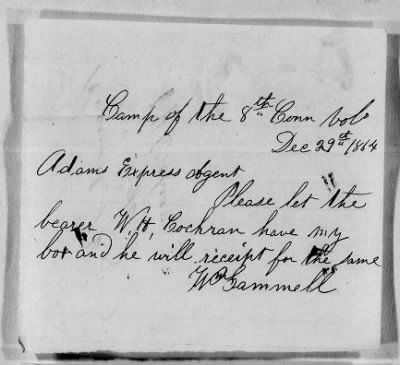 Camp of the 8th Conn Vols
Dec 29th 1864
Adams Express Agent
Please let the
bearer W. H. Cochran have my
box and he will receipt for the same
Gammell